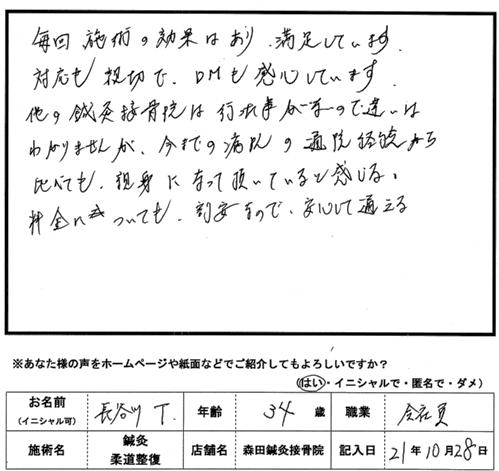 毎回 施術の効果はあり、満足しています。
対応も親切で、DMも感心しています。
他の鍼灸接骨院は行った事がないので違いは
わかりませんが、今までの病院の通院経験から
比べても、親身になって頂いていると感じる。
料金についても、割安なので、安心して通える
※あなた様の声をホームページや紙面などでご紹介してもよろしいですか？
（はい・イニシャルで・匿名で・ダメ）
お名前 （イニシャル可） 長谷川 T. 年齢 34 歳 職業 会社員
施術名 鍼灸 柔道整復 店舗名 森田鍼灸接骨院 記入日 21年10月28日